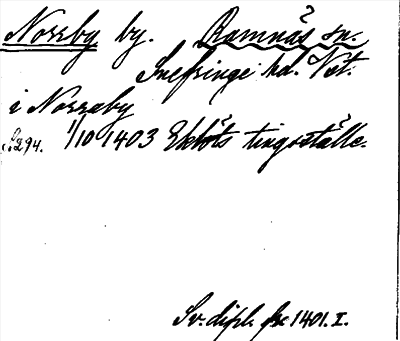 Norrby by. Ramnäs sn.
Snefringe hd. Vst.
i Norræby
s. 294. 1/10 1403 Eklöts tingsställe.
Sv. dipl. fr 1401. I.